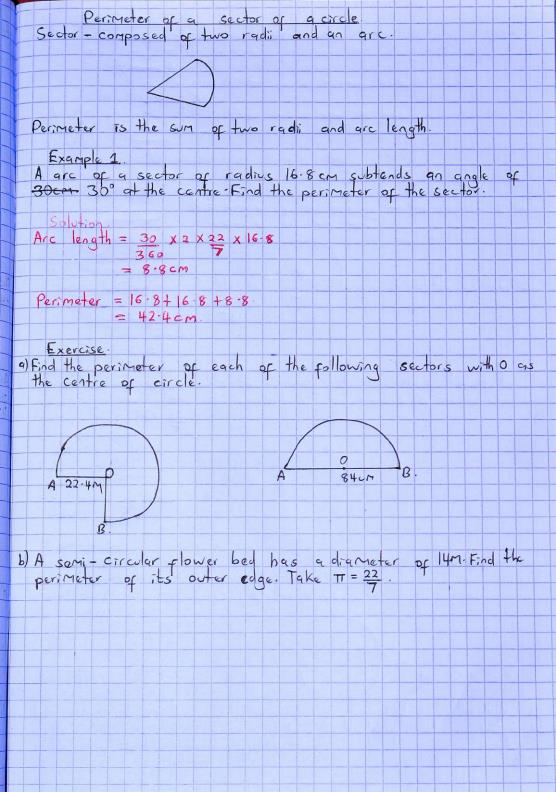 Perimeter of a sector of a circle
Sector - composed of two radii and an arc.
Perimeter is the sum of two radii and arc length.
Example 1.
A arc of a sector of radius 16.8cm subtends an angle of
30cm 30° at the centre. Find the perimeter of the sector.
Solution
Arc length = 30/360 x 2 x 22/7 x 16.8
= 8.8cm
Perimeter = 16.8 + 16.8 + 8.8
= 42.4cm.
Exercise.
a) Find the perimeter of each of the following sectors with O as
the centre of circle.
A 22.4M O
B
A O 84cm B.
b) A semi-circular flower bed has a diameter of 14M. Find the
perimeter of its outer edge. Take π = 22/7.